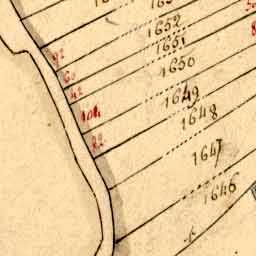 1652
1651
1650
1649
1648
1647
1646
92
60
42
104
82